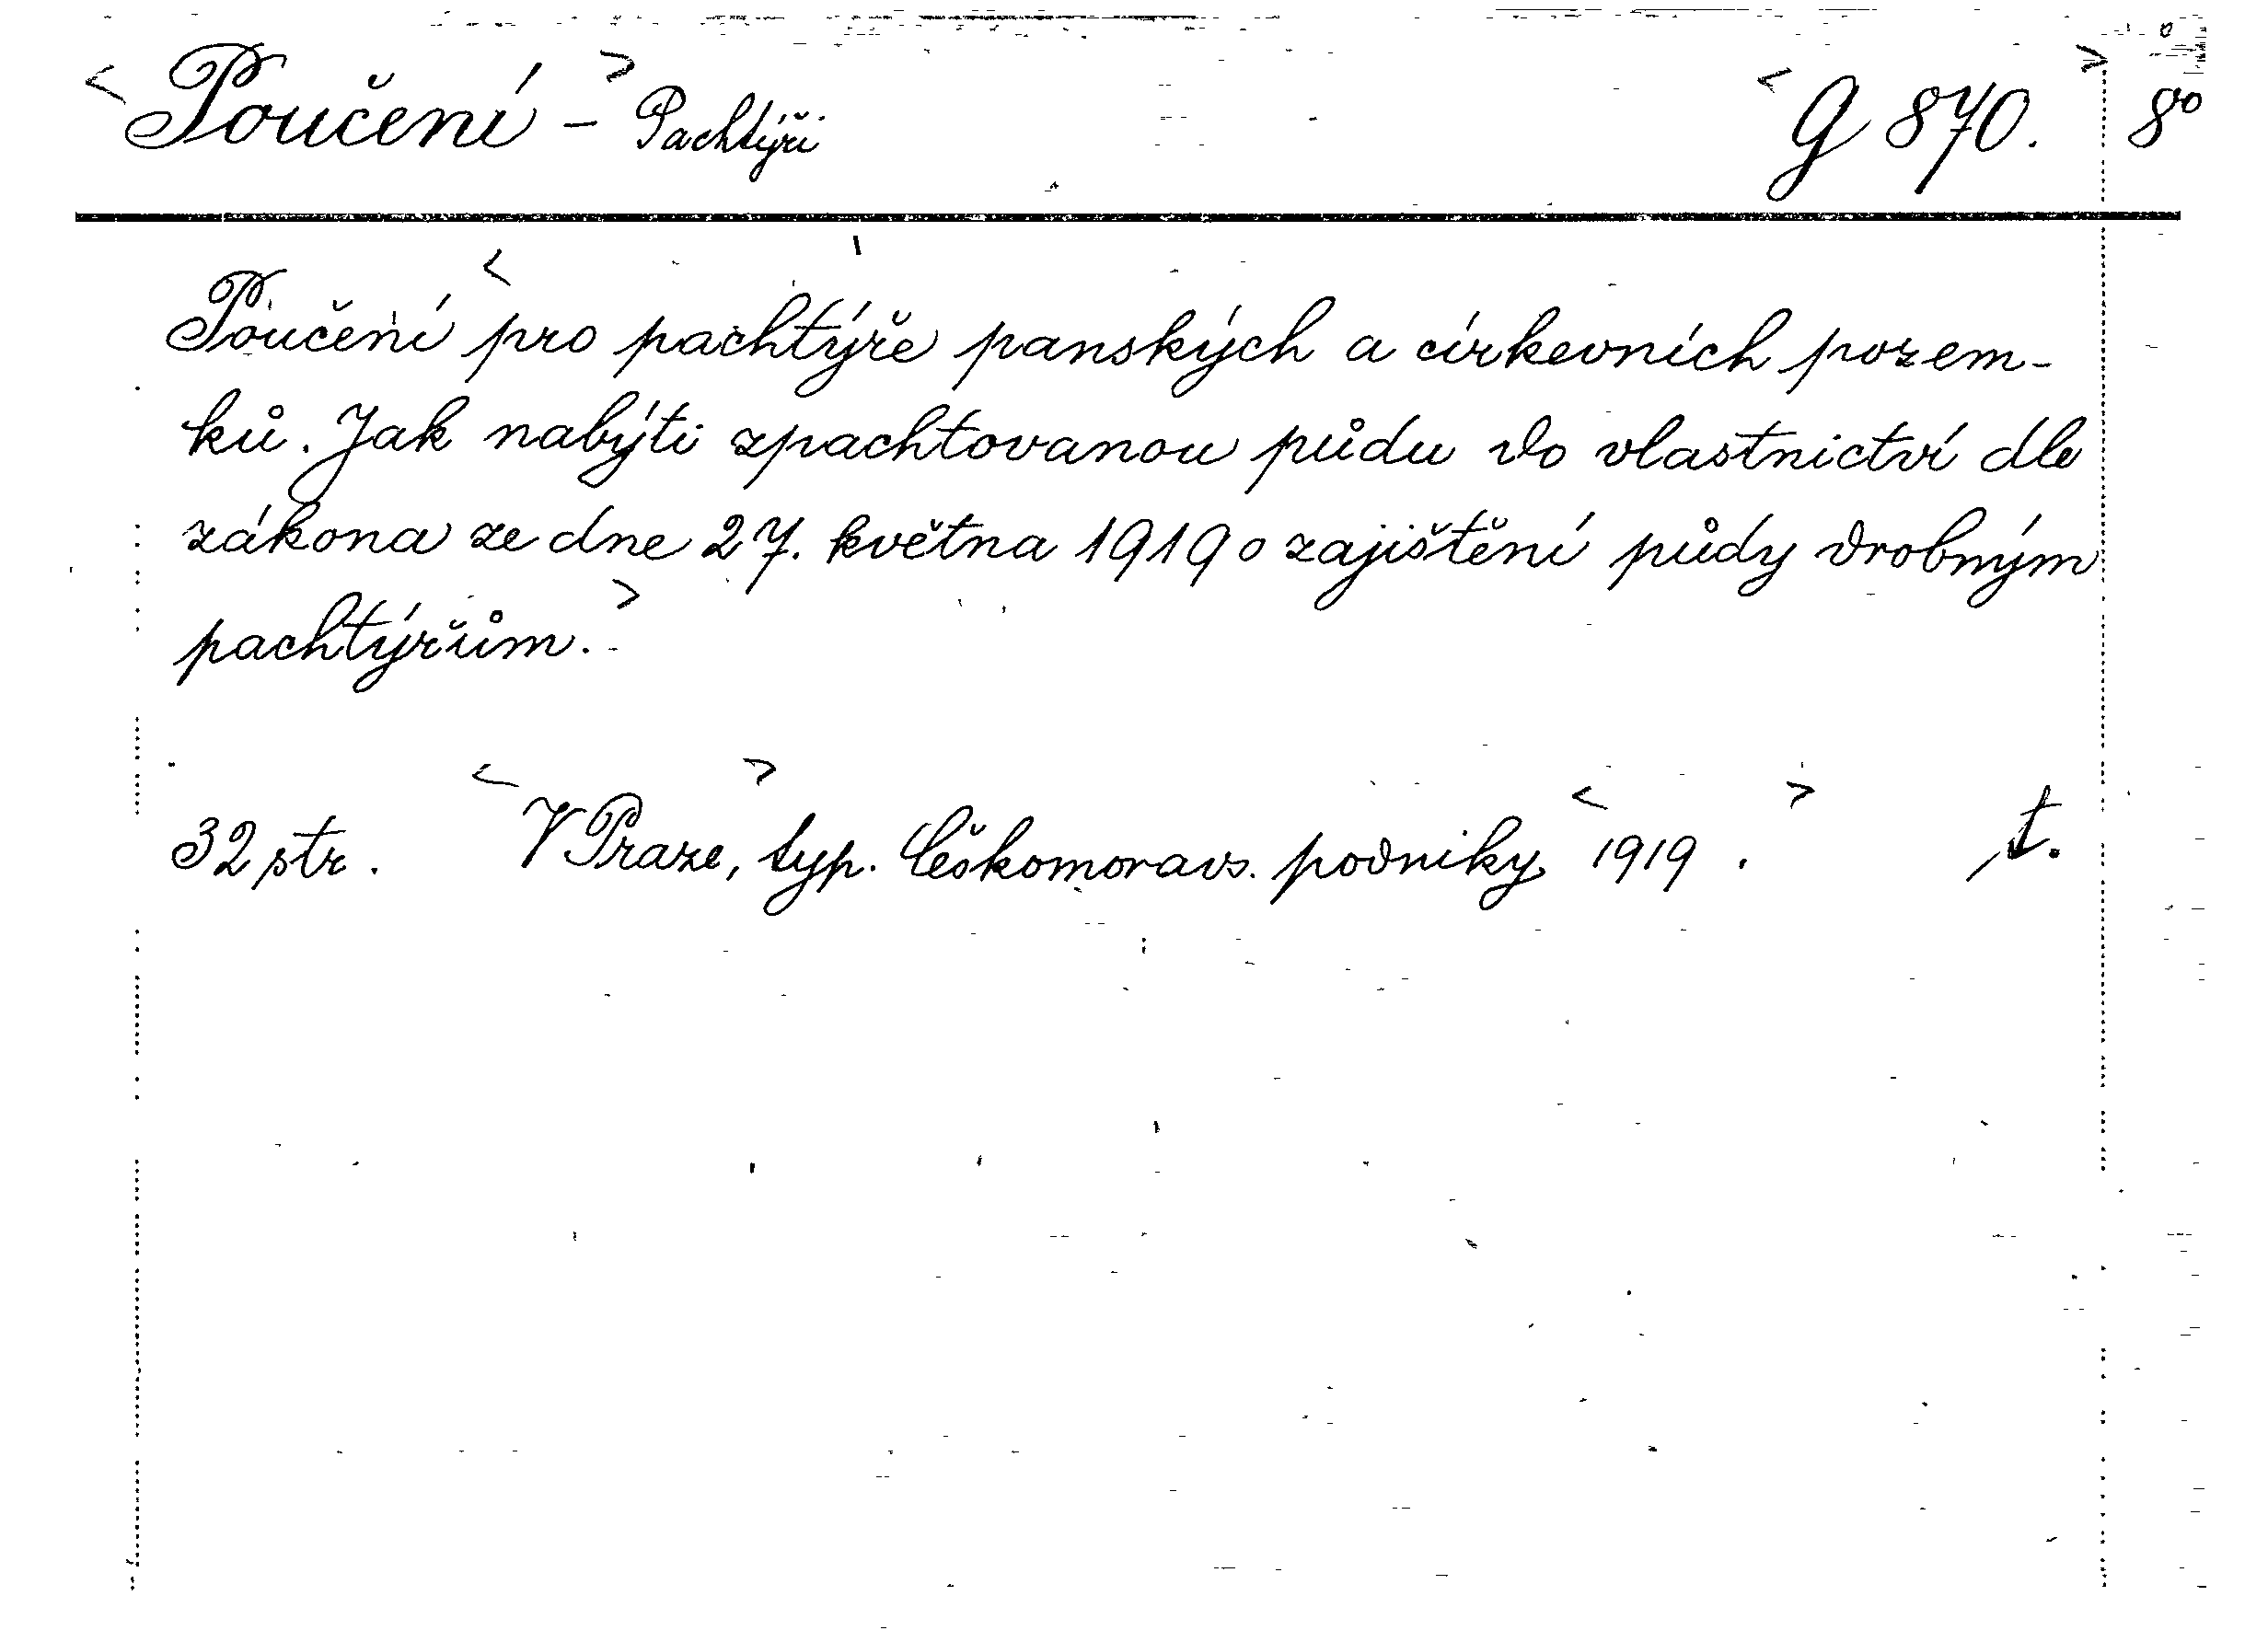 < Poučení > - Pachtýři < G 870. > 8°
Poučení < pro pachtýře panských a církevních pozem-
ků. Jak nabýti zpachtovanou půdu do vlastnictví dle
zákona ze dne 27. května 1919 o zajištění půdy drobným
pachtýřům. >
32 str. < V Praze, > typ. Českomoravs. podniky < 1919. > t.